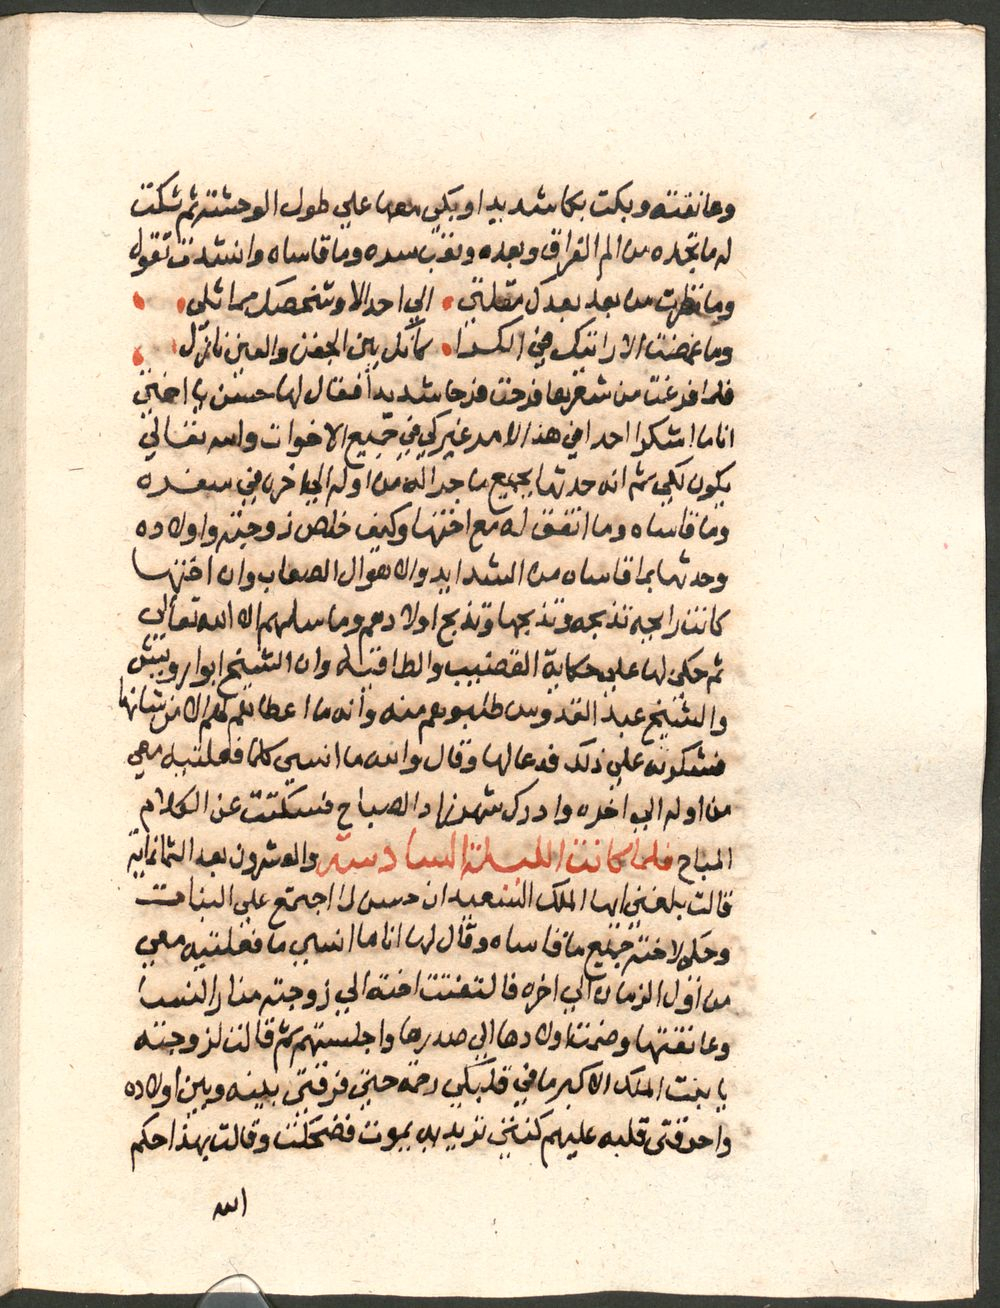 وعانقته وبكت بكا شديدا وبكي معها علي طول الوحشة ثم شكت
له ما تجده من الم الفراق وبعده وتقرب سده وما قاساه وانشدت تقول
وما نظرت من بعد بعدك مقلتي الي احد الا وشخصك مماثلي
وما غمضت الا رايتك في الكرا كانك بين الجفن والعين نازل
فلما فرغت من شعرها فرحت فرحا شديدا فقال لها حسن يا اختي
انا ما اشكرا احدا في هذا الامر غيركي في جميع الاخوات والله تعالي
يكون لكي ثم انه حدثها بجميع ما جراله من اوله الي اخره في سفره
وما قاساه وما اتفق له مع اختها وكيف خلص زوجته واولاده
وحدثها بما قاساه من الشدايد والاهوال الصعاب وان اختها
كانت رايحه تذبحه وتذبحها وتذبح اولادهم وما سلمهم الا الله تعالي
ثم حكي لها علي حكاية القضيب والطاقيه وان الشيخ ابوا رويش
والشيخ عبد القدوس طلبوهم منه وانه ما اعطاهم لهم الا من شانها
فشكرته علي ذلك فدعا لها وقال والله ما انسي كلما فعلتيه معي
من اوله الي اخره وادرك شهرزاد الصباح فسكتت عن الكلام
المباح فلما كانت الليلة السادسة والعشرون بعد الثمانماية
قالت بلغني ايها الملك السعيد ان حسن لما اجتمع علي البنات
وحكي لاخته جميع ما قاساه وقال لها انا ما انسي ما فعلتيه معي
من اول الزمان الي اخره فالتفتت اخته الي زوجته منار النسا
وعانقتها وضمت اولادها الي صدرها واجلستهم ثم قالت لزوجته
يا بنت الملك الاكبر ما في قلبكي رحمة حتي فرقتي بينه وبين اولاده
واحرقتي قلبه عليهم كنتي تريديه يموت فضحكت وقالت بهذا حكم
الله